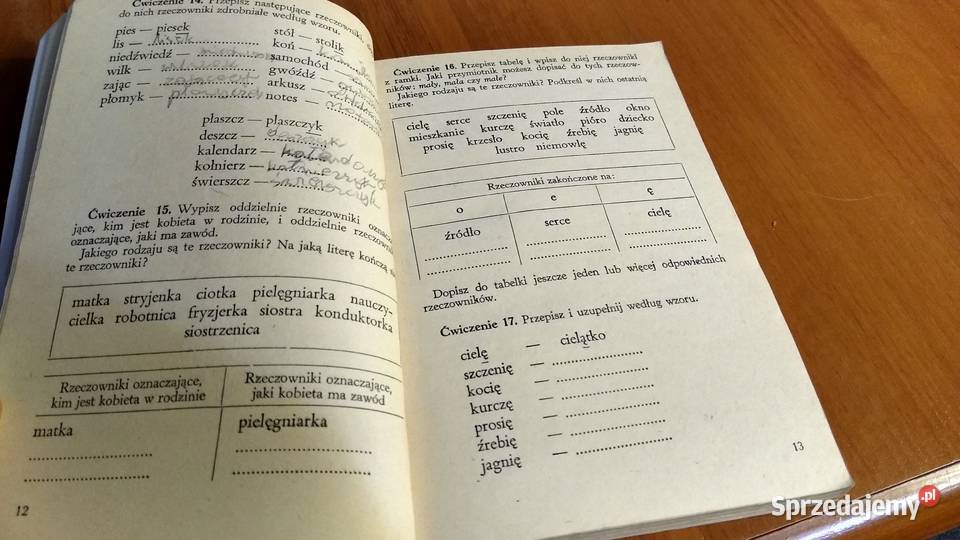 Ćwiczenie 14. Przepisz następujące rzeczowniki,
do nich rzeczowniki zdrobniałe według wzoru.
pies — piesek
lis — lisek
niedźwiedź —
wilk —
zając —
płomyk —
stół — stolik
koń —
samochód —
gwóźdź —
arkusz —
notes —
płaszcz — płaszczyk
deszcz —
kalendarz —
kołnierz —
świerszcz —
Ćwiczenie 15. Wypisz oddzielnie rzeczowniki
jące, kim jest kobieta w rodzinie, i oddzielnie
oznaczające, jaki ma zawód.
Jakiego rodzaju są te rzeczowniki? Na jaką literę kończą
te rzeczowniki?
matka stryjenka ciotka pielęgniarka nauczy-
cielka robotnica fryzjerka siostra konduktorka
siostrzenica
Rzeczowniki oznaczające,
kim jest kobieta w rodzinie
Rzeczowniki oznaczające,
jaki kobieta ma zawód
matka
pielęgniarka
12
Ćwiczenie 16. Przepisz tabelę i wpisz do niej rzeczowniki
z ramki. Jaki przymiotnik możesz dopisać do tych rzeczow-
ników: mały, mała czy małe?
Jakiego rodzaju są te rzeczowniki? Podkreśl w nich ostatnią
literę.
cielę serce szczenię pole źródło okno
mieszkanie kurczę światło pióro dziecko
prosię krzesło kocię źrebię jagnię
lustro niemowlę
Rzeczowniki zakończone na:
o e ę
źródło serce cielę
Dopisz do tabelki jeszcze jeden lub więcej odpowiednich
rzeczowników.
Ćwiczenie 17. Przepisz i uzupełnij według wzoru.
cielę — cielątko
szczenię —
kocię —
kurczę —
prosię —
źrebię —
jagnię —
13
Sprzedajemy.pl